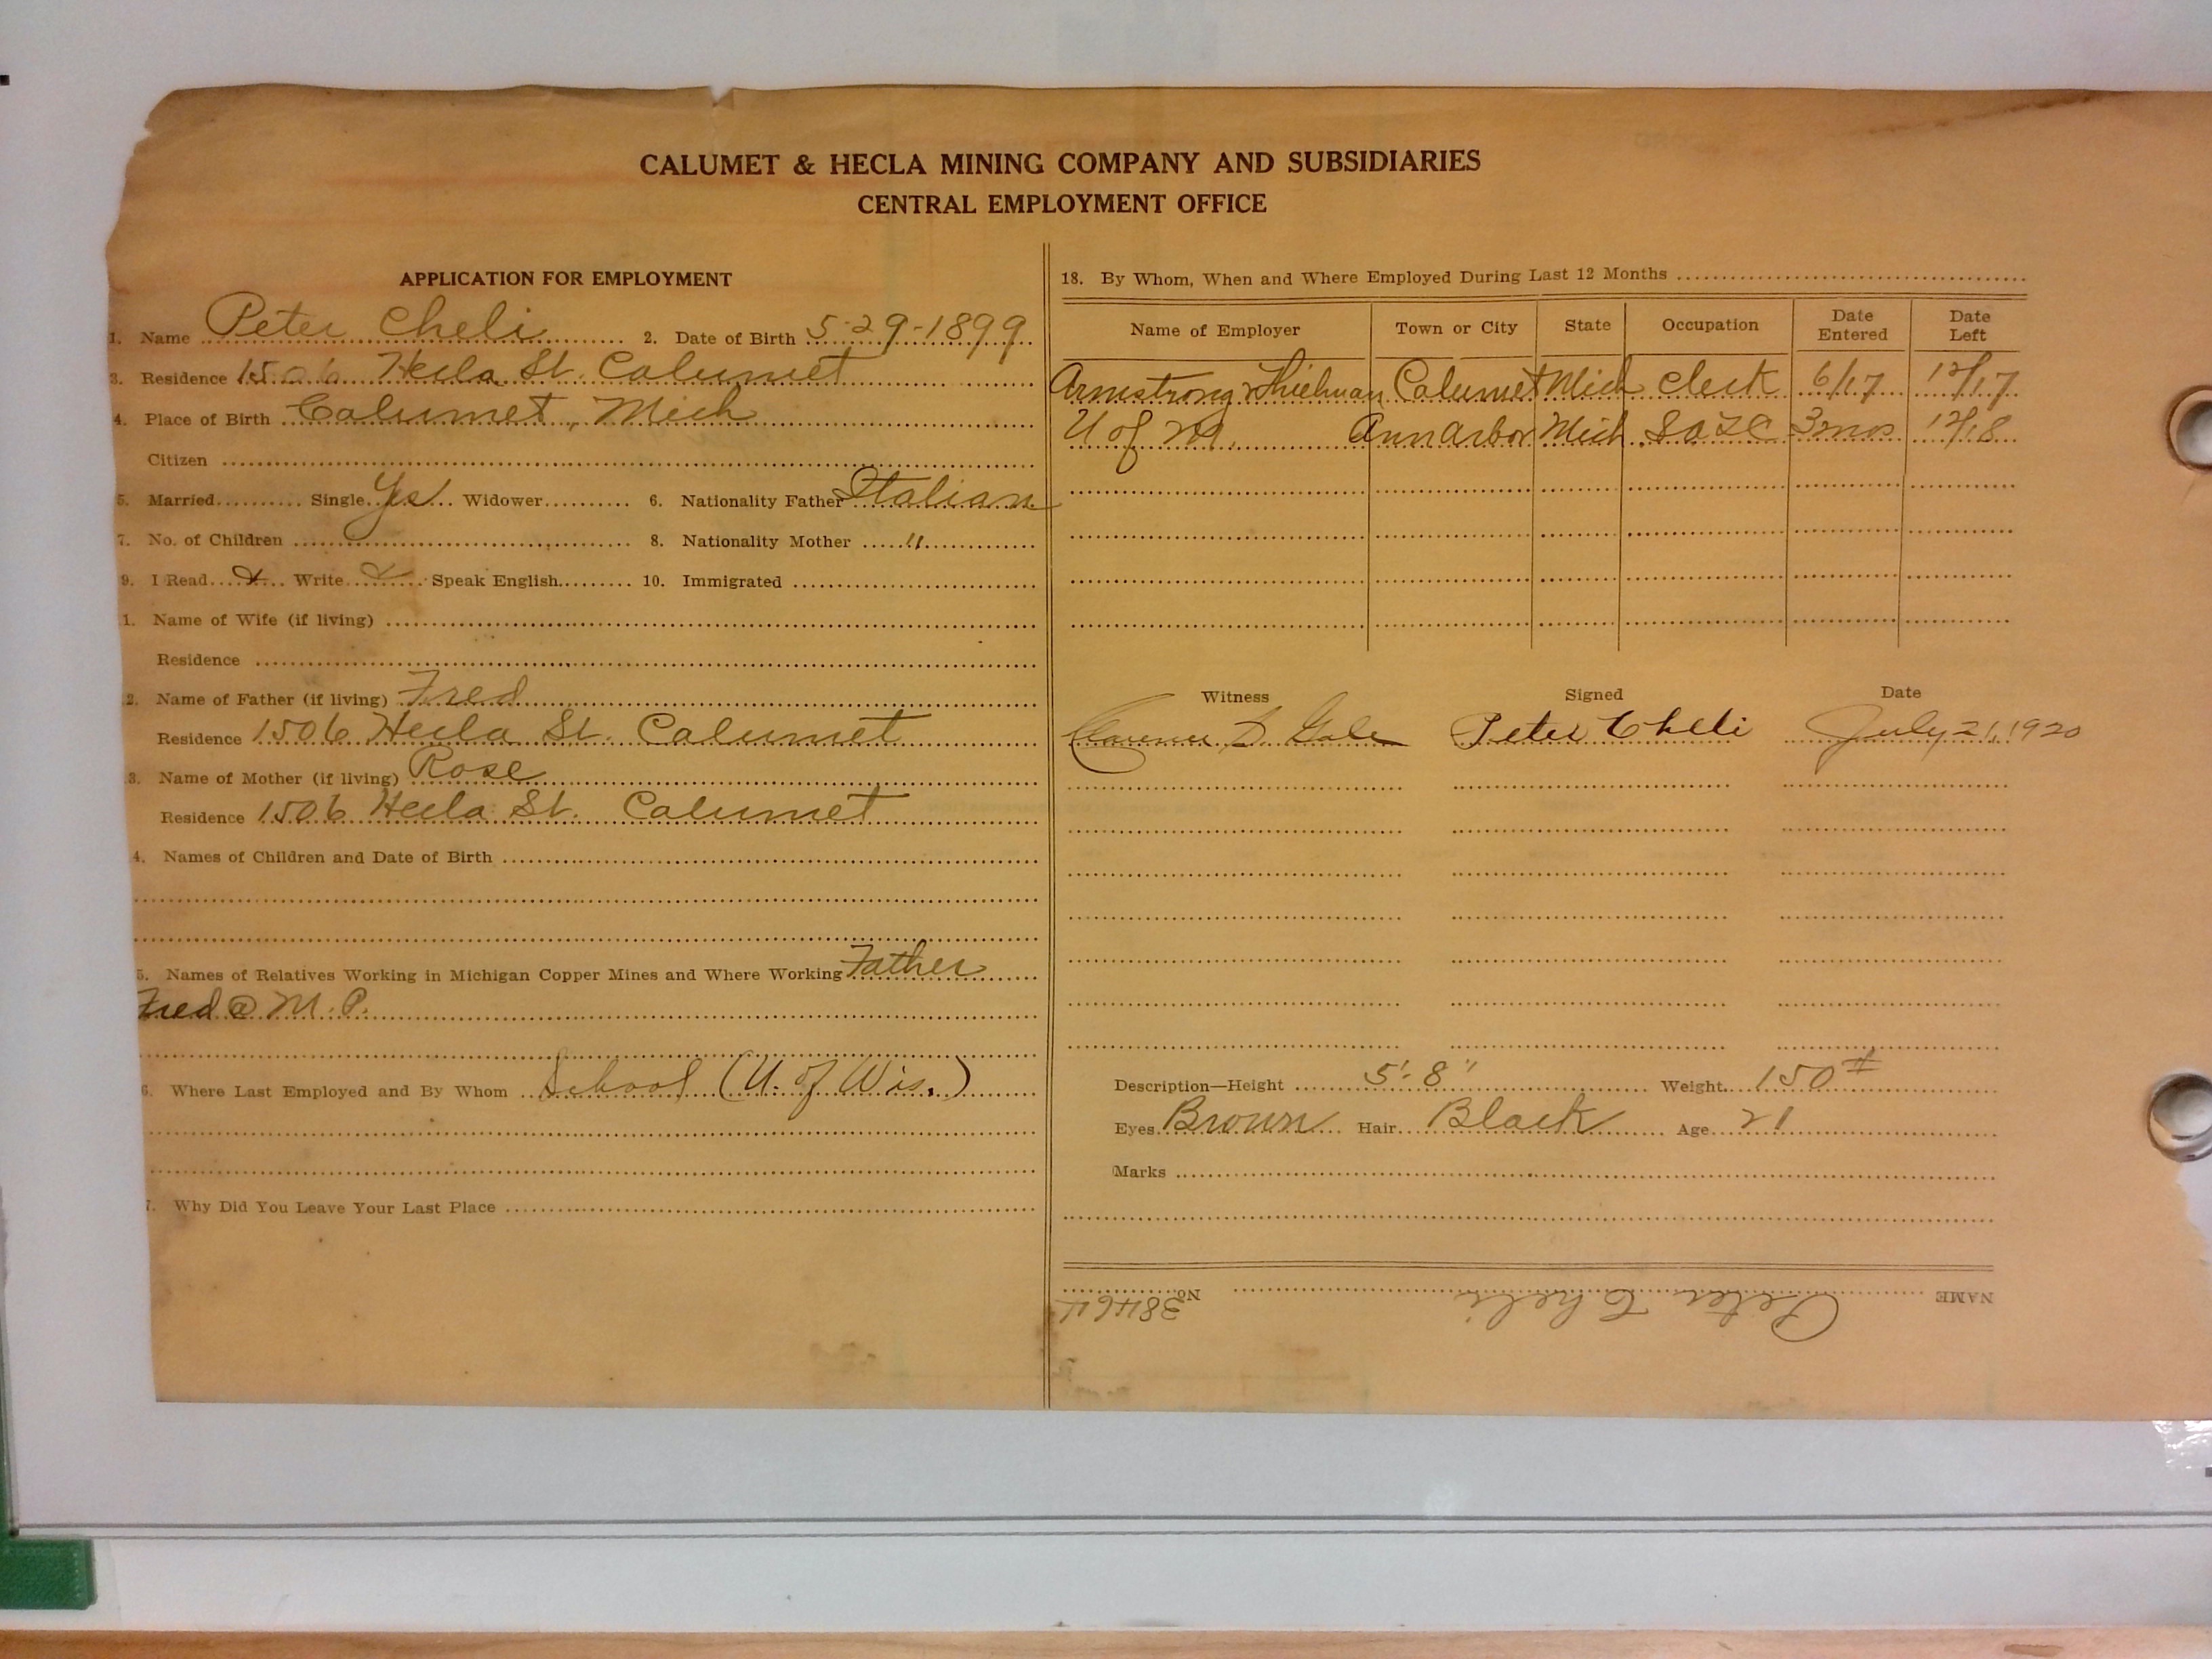 CALUMET & HECLA MINING COMPANY AND SUBSIDIARIES
CENTRAL EMPLOYMENT OFFICE
APPLICATION FOR EMPLOYMENT
1. Name Peter Cheli 2. Date of Birth 5-29-1899
3. Residence 1506 Hecla St. Calumet
4. Place of Birth Calumet, Mich
Citizen
5. Married Single Yes Widower 6. Nationality Father Italian
7. No. of Children 8. Nationality Mother "
9. I Read Write Speak English 10. Immigrated
1. Name of Wife (if living)
Residence
2. Name of Father (if living) Fred
Residence 1506 Hecla St. Calumet
3. Name of Mother (if living) Rose
Residence 1506 Hecla St. Calumet
4. Names of Children and Date of Birth
5. Names of Relatives Working in Michigan Copper Mines and Where Working Father
Fred @ M. P.
6. Where Last Employed and By Whom School (U. of Wis.)
7. Why Did You Leave Your Last Place
18. By Whom, When and Where Employed During Last 12 Months
Name of Employer Town or City State Occupation Date Entered Date Left
Armstrong Thielman Calumet Mich Clerk 6/17 12/17
U of M. Ann Arbor Mich 3 mos 12/18
Witness Signed Date
Clarence Gale Peter Cheli July 21, 1920
Description—Height 5'-8" Weight 150#
Eyes Brown Hair Black Age 21
Marks
NAME Peter Cheli No. 38464